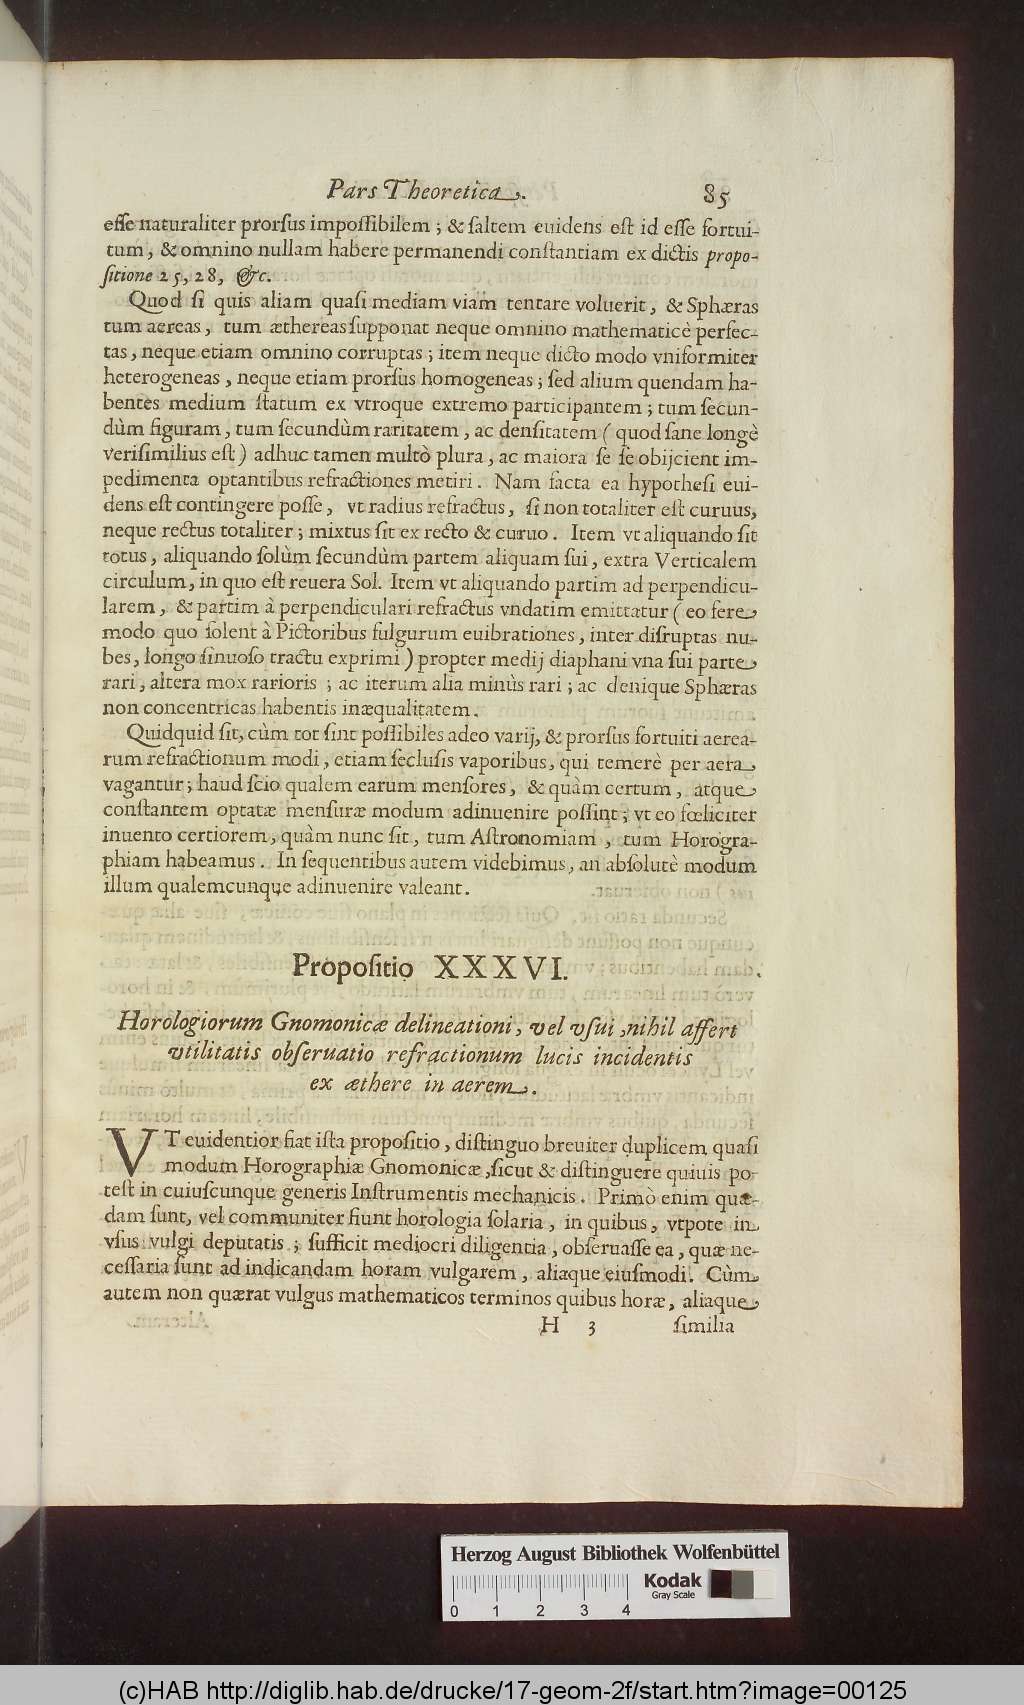 Pars Theoretica. 85
eſſe naturaliter prorſus impoſſibilem ; & ſaltem euidens eſt id eſſe fortui-
tum, & omnino nullam habere permanendi conſtantiam ex dictis propo-
ſitione 25, 28, &c.
Quod ſi quis aliam quaſi mediam viam tentare voluerit, & Sphæras
tum aereas, tum æthereas ſupponat neque omnino mathematicè perfec-
tas, neque etiam omnino corruptas ; item neque dicto modo vniformiter
heterogeneas, neque etiam prorſus homogeneas ; ſed alium quendam ha-
bentes medium ſtatum ex vtroque extremo participantem ; tum ſecun-
dùm figuram, tum ſecundùm raritatem, ac denſitatem ( quod ſane longè
veriſimilius eſt ) adhuc tamen multò plura, ac maiora ſe ſe obijcient im-
pedimenta optantibus refractiones metiri. Nam facta ea hypotheſi eui-
dens eſt contingere poſſe, vt radius refractus, ſi non totaliter eſt curuus,
neque rectus totaliter ; mixtus ſit ex recto & curuo. Item vt aliquando ſit
totus, aliquando ſolùm ſecundùm partem aliquam ſui, extra Verticalem
circulum, in quo eſt reuera Sol. Item vt aliquando partim ad perpendicu-
larem, & partim à perpendiculari refractus vndatim emittatur ( eo fere
modo quo ſolent à Pictoribus fulgurum euibrationes, inter diſruptas nu-
bes, longo ſinuoſo tractu exprimi ) propter medij diaphani vna ſui parte
rari, altera mox rarioris ; ac iterum alia minùs rari ; ac denique Sphæras
non concentricas habentis inæqualitatem.
Quidquid ſit, cùm tot ſint poſſibiles adeo varij, & prorſus fortuiti aerea-
rum refractionum modi, etiam ſecluſis vaporibus, qui temerè per aera
vagantur ; haud ſcio qualem earum menſores, & quàm certum, atque
conſtantem optatæ menſuræ modum adinuenire poſſint ; vt eo fœliciter
inuento certiorem, quàm nunc ſit, tum Aſtronomiam, tum Horogra-
phiam habeamus. In ſequentibus autem videbimus, an abſolutè modum
illum qualemcunque adinuenire valeant.
Propoſitio XXXVI.
Horologiorum Gnomonicæ delineationi, vel vſui, nihil affert
vtilitatis obſeruatio refractionum lucis incidentis
ex æthere in aerem.
VT euidentior fiat iſta propoſitio, diſtinguo breuiter duplicem quaſi
modum Horographiæ Gnomonicæ, ſicut & diſtinguere quiuis po-
teſt in cuiuſcunque generis Inſtrumentis mechanicis. Primò enim quæ-
dam ſunt, vel communiter fiunt horologia ſolaria, in quibus, vtpote in
vſus vulgi deputatis ; ſufficit mediocri diligentia, obſeruaſſe ea, quæ ne-
ceſſaria ſunt ad indicandam horam vulgarem, aliaque eiuſmodi. Cùm
autem non quærat vulgus mathematicos terminos quibus horæ, aliaque
H 3 ſimilia
Herzog August Bibliothek Wolfenbüttel
Kodak
Gray Scale
0 1 2 3 4
(c)HAB http://diglib.hab.de/drucke/17-geom-2f/start.htm?image=00125